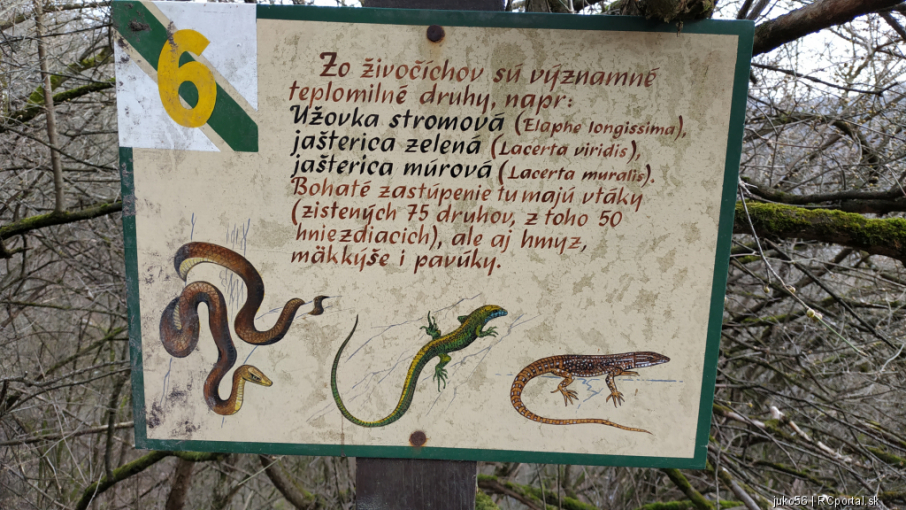 6
Zo živočíchov sú významné
teplomilné druhy, napr:
Užovka stromová (Elaphe longissima),
jašterica zelená (Lacerta viridis),
jašterica múrová (Lacerta muralis).
Bohaté zastúpenie tu majú vtáky
(zistených 75 druhov, z toho 50
hniezdiacich), ale aj hmyz,
mäkkýše i pavúky.
juko56 | RCportal.sk